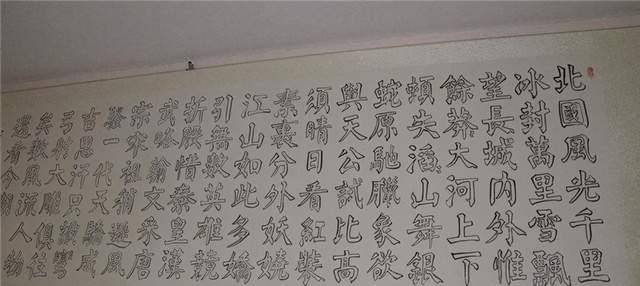 北國風光千里
冰封萬里雪飄
望長城内外惟
餘莽大河上下
頓失滔山舞銀
蛇原馳臘象欲
與天公試比高
須晴日看紅裝
素裹分外妖嬈
江山如此多嬌
引無數英雄競
折腰惜秦皇漢
武略輸文采唐
宗宋祖稍遜風
騷一代天驕成
吉思汗只識彎
弓射大雕俱往
矣數風流人物
還看今朝